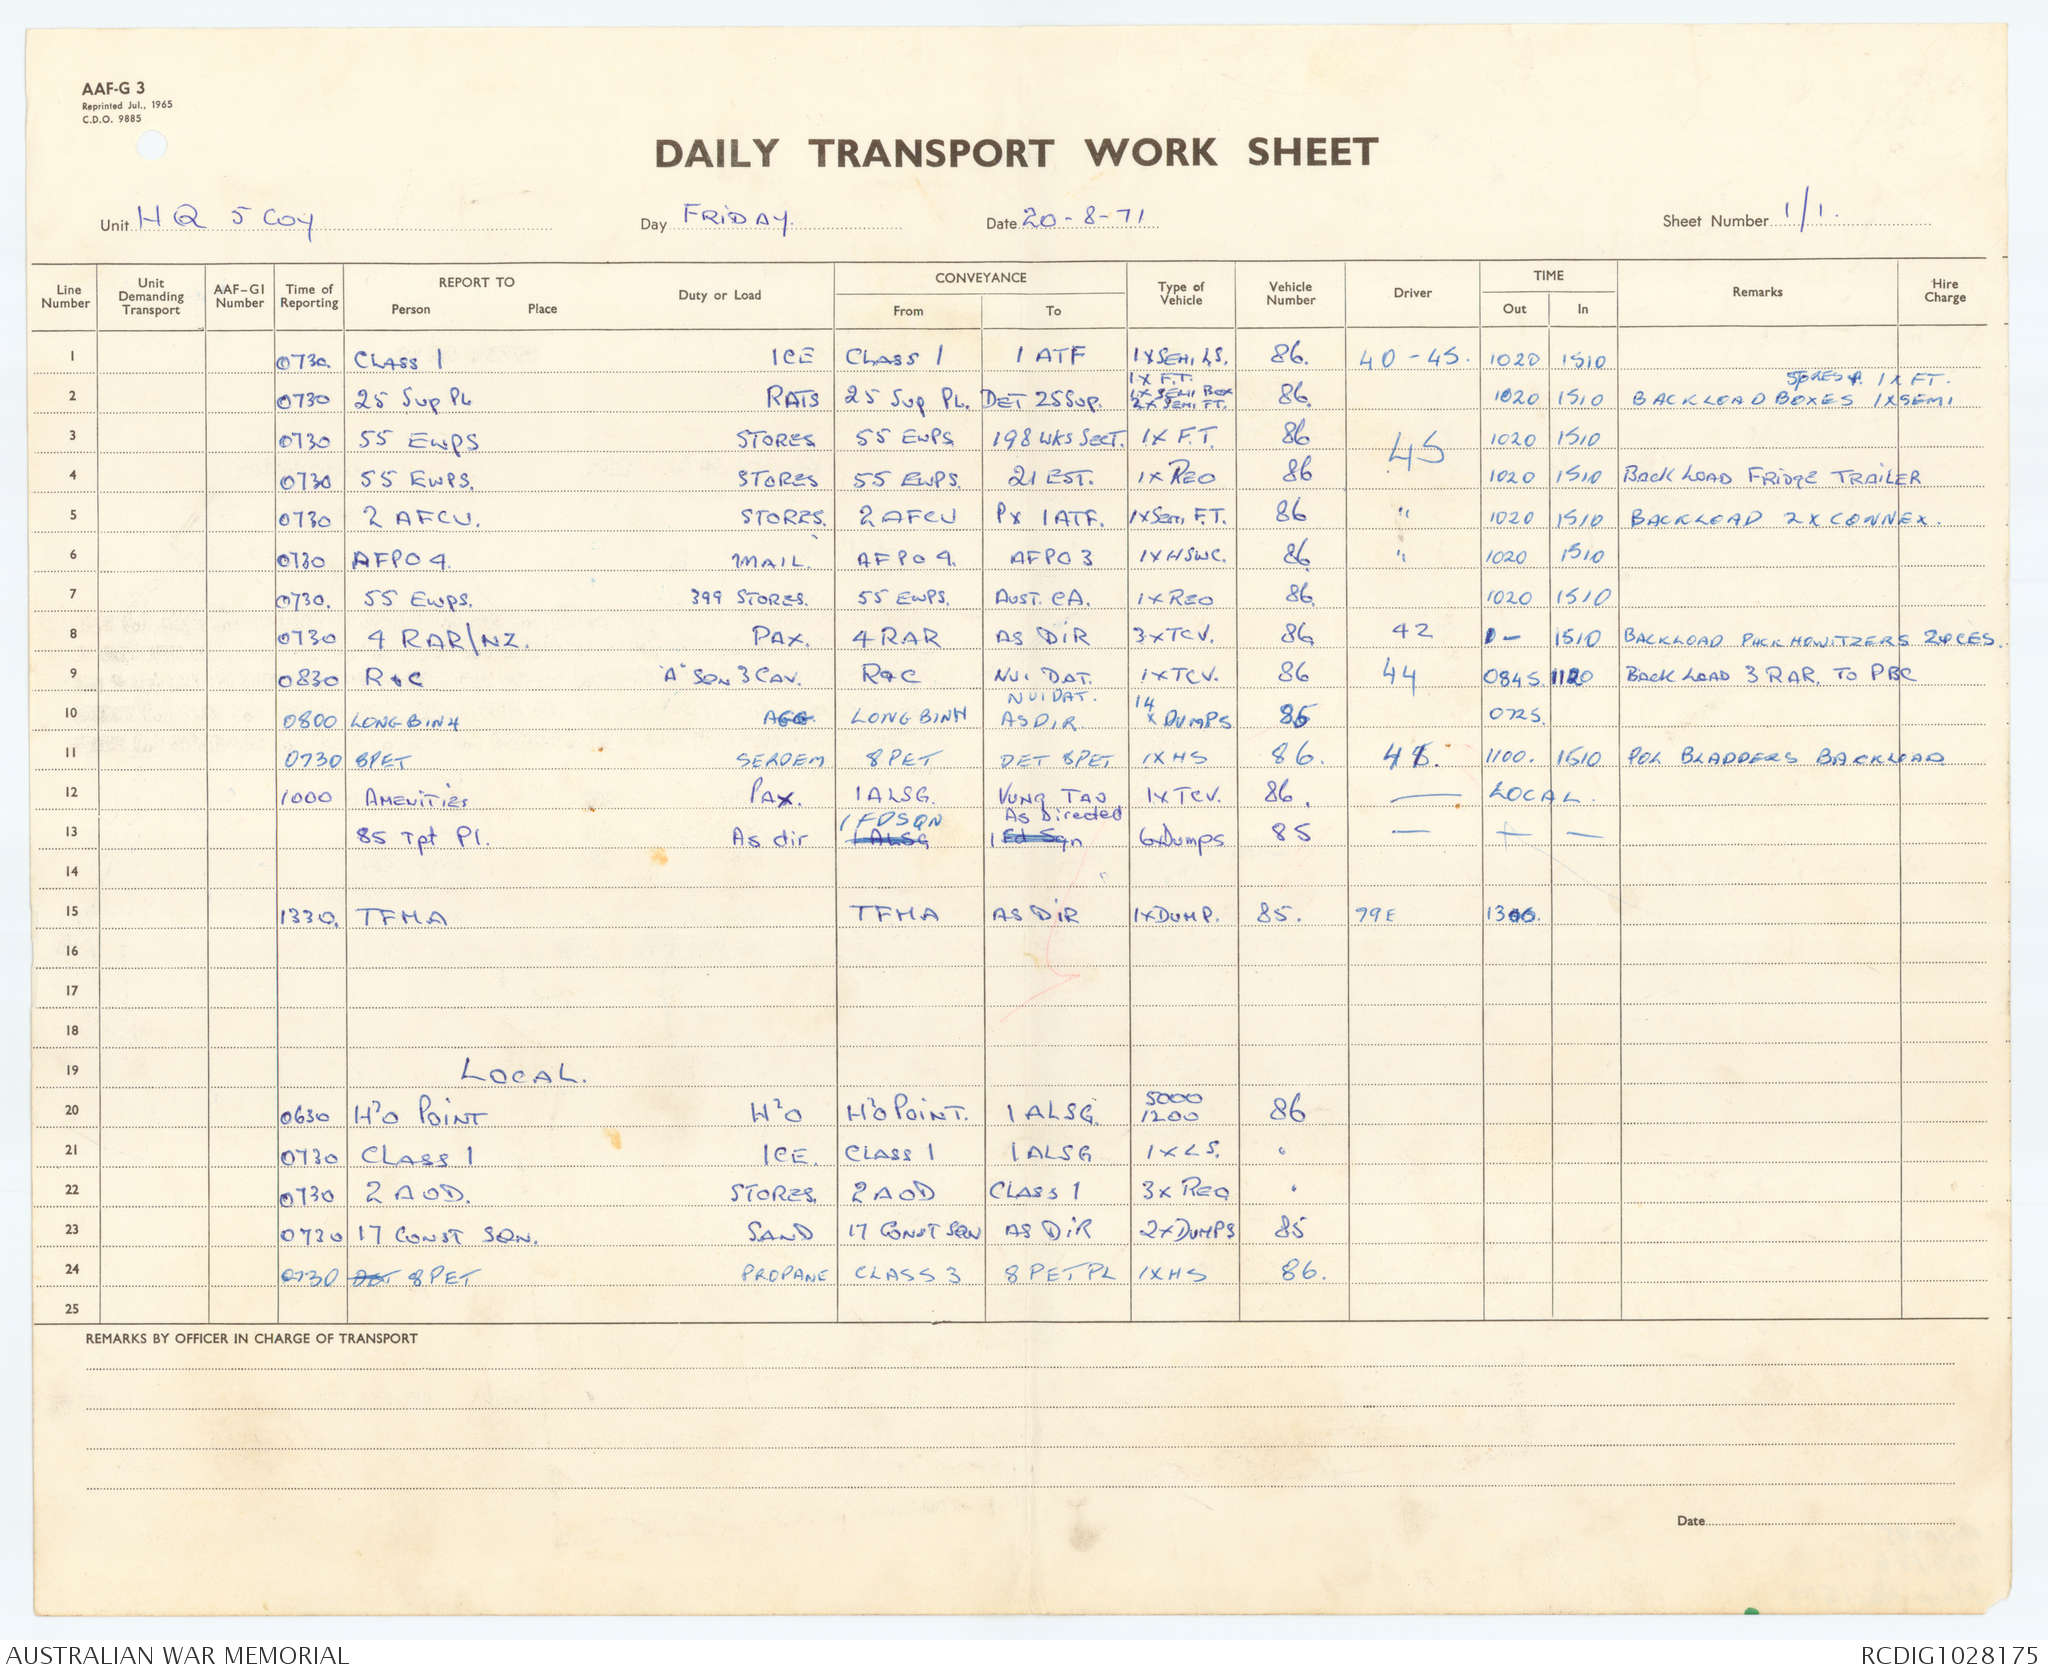 AAF-G 3
Reprinted Jul., 1965
C.D.O. 9885
DAILY TRANSPORT WORK SHEET
Unit HQ 5 Coy Day FRIDAY. Date 20-8-71 Sheet Number 1/1.
Line Number Unit Demanding Transport AAF-G1 Number Time of Reporting REPORT TO Person Place Duty or Load CONVEYANCE From To Type of Vehicle Vehicle Number Driver TIME Out In Remarks Hire Charge
1 0730. CLASS 1 ICE CLASS 1 1 ATF 1 x SEMI LS. 86. 40-45. 1020 1510
2 0730 25 Sup PL RATS 25 Sup PL. DET 25 Sup. 1 x F.T. 1 x SEMI BOX 2 x SEMI FT. 86. 1020 1510 BACKLOAD BOXES 1 x SEMI STORES 1 x FT.
3 0730 55 EWPS STORES 55 EWPS 198 WKS SECT. 1 x F.T. 86 45 1020 1510
4 0730 55 EWPS. STORES 55 EWPS. 21 EST. 1 x REO 86 1020 1510 BACK LOAD FRIDGE TRAILER
5 0730 2 AFCU. STORES. 2 AFCU PX 1 ATF. 1 x Semi F.T. 86 " 1020 1510 BACKLOAD 2 x CONNEX.
6 0730 AFPO 4. MAIL. AFPO 4. AFPO 3 1 x HSWC. 86. " 1020 1510
7 0730. 55 EWPS. 399 STORES. 55 EWPS. AUST. CA. 1 x REO 86. 1020 1510
8 0730 4 RAR/NZ. PAX. 4 RAR AS DIR 3 x TCV. 86 42 - 1510 BACKLOAD PACK HOWITZERS 2 PCES.
9 0830 R & C "A" SQN 3 CAV. R & C NUI DAT. 1 x TCV. 86 44 0845 1120 BACK LOAD 3 RAR. TO PBC
10 0800 LONG BINH AGG LONG BINH NUI DAT. AS DIR 14 x DUMPS 85 0725.
11 0730 8 PET SERDEM 8 PET DET 8 PET 1 x HS 86. 45. 1100. 1510 POL BLADDERS BACKLOAD
12 1000 AMENITIES PAX. 1 ALSG. VUNG TAO 1 x TCV. 86. — LOCAL.
13 85 Tpt Pl. As dir 1 FD SQN 1 ALSG As Directed 1 Fd Sqn 6 x Dumps 85 — — —
14
15 1330. TFMA TFMA AS DIR 1 x DUMP. 85. 79E
16
17
18
19 LOCAL.
20 0630 H²O POINT H²O H²O POINT. 1 ALSG. 5000 1200 86
21 0730 CLASS 1 ICE. CLASS 1 1 ALSG 1 x LS. "
22 0730 2 AOD. STORES. 2 AOD CLASS 1 3 x REO "
23 0730 17 CONST SQN. SAND 17 CONST SQN AS DIR 2 x DUMPS 85
24 0730 8 PET PROPANE CLASS 3 8 PET PL 1 x HS 86.
25
REMARKS BY OFFICER IN CHARGE OF TRANSPORT
Date
AUSTRALIAN WAR MEMORIAL RCDIG1028175